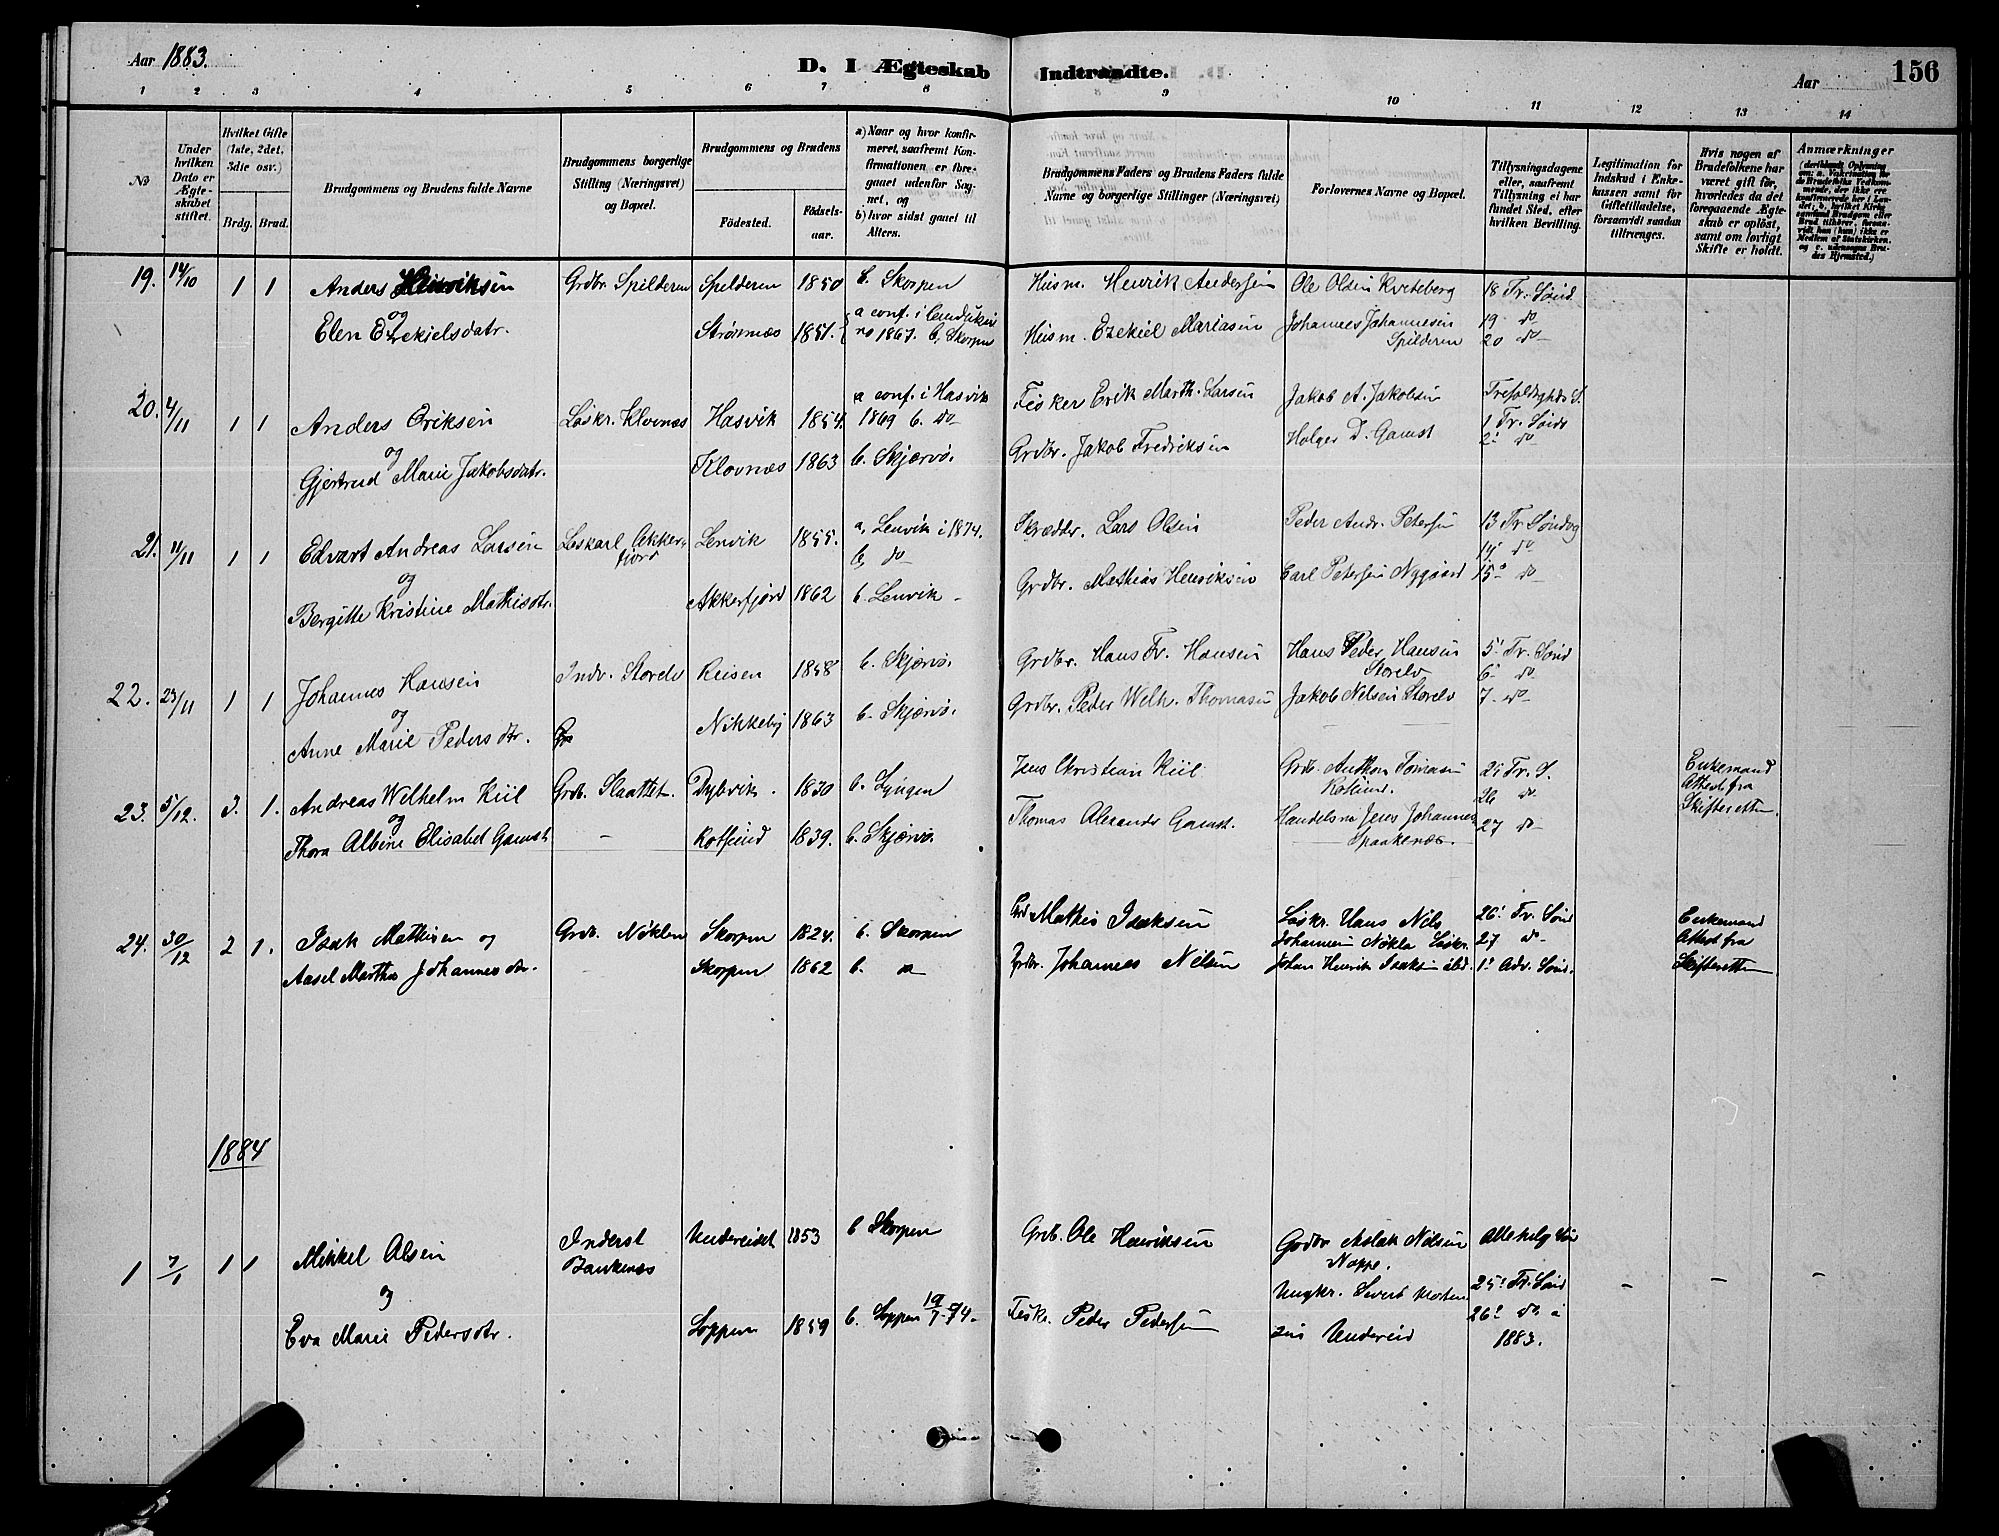 Aar 1883.
D. I Ægteskab Indtraadte.
Aar
156
1 2 3 4 5 6 7 8 9 10 11 12 13 14
No
Under hvilken Dato er Ægteskabet stiftet.
Hvilket Gifte (1ste, 2det, 3die osv.)
Brdg. Brud.
Brudgommens og Brudens fulde Navne
Brudgommens borgerlige Stilling (Næringsvei) og Bopæl.
Brudgommens og Brudens
Födested. Födselsaar.
a) Naar og hvor konfirmeret, saafremt Konfirmationen er foregaaet udenfor Sognet, og
b) hvor sidst gaaet til Alters.
Brudgommens Faders og Brudens Faders fulde Navne og borgerlige Stillinger (Næringsvei)
Forlovernes Navne og Bopæl.
Tillysningsdagene eller, saafremt Tillysning ei har fundet Sted, efter hvilken Bevilling.
Legitimation for Indskud i Enkekassen samt for Giftetilladelse, forsaavidt saadan tiltrænges.
Hvis nogen af Brudefolkene har været gift før, hvorledes da det foregaaende Ægteskab er oplöst, samt om lovligt Skifte er holdt.
Anmærkninger
19. 14/10 1 1 Anders Henriksen Grdbr. Spilderen Spilderen 1850 b. Skorpen Husm. Henrik Andersen Ole Olsen Kviteberg 18 Tr. Sønd.
og
Elen Ezekielsdatr. Strømnæs 1851. a conf. i 1867. b, Skorpen Husm. Ezekiel Mariasen Johannes Johannesen Spilderen 19 do 20 do
20. 4/11 1 1 Anders Eriksen Løskr. Klovnæs Hasvik 1854. a conf. i Hasvik 1869 b. do Fisker Erik Marth. Larsen Jakob A. Jakobsen Trefoldigheds S.
og
Gjertrud Marie Jakobsdatr. Klovnæs 1863 b. Skjærvø. Grdbr. Jakob Fredriksen Holger D. Gamst 1 Tr. Sønd 2. do
21. 11/11 1 1 Edvart Andreas Larsen Løskarl Akkerfjord Lenvik 1855. a, Lenvik i 1874. b, do Skrædder. Lars Olsen Peder Andr. Petersen 13 Tr. Søndag
og
Bergitte Kristine Mathisdtr. Akkerfjord 1862 b. Lenvik - Grdbr. Mathias Henriksen Carl Petersen Nygaard 14 do 15 do
22. 23/11 1 1 Johannes Hansen Indr. Storelv Reisen 1858 b. Skjærvø. Grdbr. Hans Fr. Hansen Hans Peder Hansen Storelv 5. Tr. Sønd
og
Anne Marie Pedersdtr. Nikkeby 1863 b. Skjærvø. Grdbr. Peder Welh. Thomasen Jakob Nilsen Storelv 6 do 7 do
23. 5/12. 3. 1. Andreas Wilhelm Kiil Grdb. Slaattet. Dybvik. 1830 b. Lyngen Jens Christian Kiil Grdb. Anthon Tomasen Rotsund. 25 Tr. S. Enkemand Attest fra Skifteretten
og
Thora Albine Elisabet Gamst - Rotsund 1839. b. Skjærvø. Thomas Alexander Gamst. Handelsm Jens Johannes Spaakenæs. 26 do 27 do
24. 30/12 2 1. Isak Mathisen og Grdb. Nøklen Skorpen 1824. b. Skorpen Grd Mathis Isaksen Løskr. Hans Nils Johannesen Nøkla Løskr. 26. Tr. Sønd 27 do Enkemand Attest fra Skifteretten
Aasel Marthe Johannesdtr. - Skorpen 1862 b. do Grdbr. Johannes Nilsen Johan Henrik Isaksen 1. Adv. Sønd.
1884
1 7/1 1 1 Mikkel Olsen Inderst Baukenæs Undereidet 1853 b Skorpen Grdb. Ole Henriksen Grdbr Aslak Nilsen Noppe. Allehelg
og
Eva Marie Pedersdtr. Loppen 1859 b. Loppen 19/7-74. Fisk. Peder Pedersen Ungkr. Sivert Undereid 25. Tr. Sønd 26. do i 1883. - - -